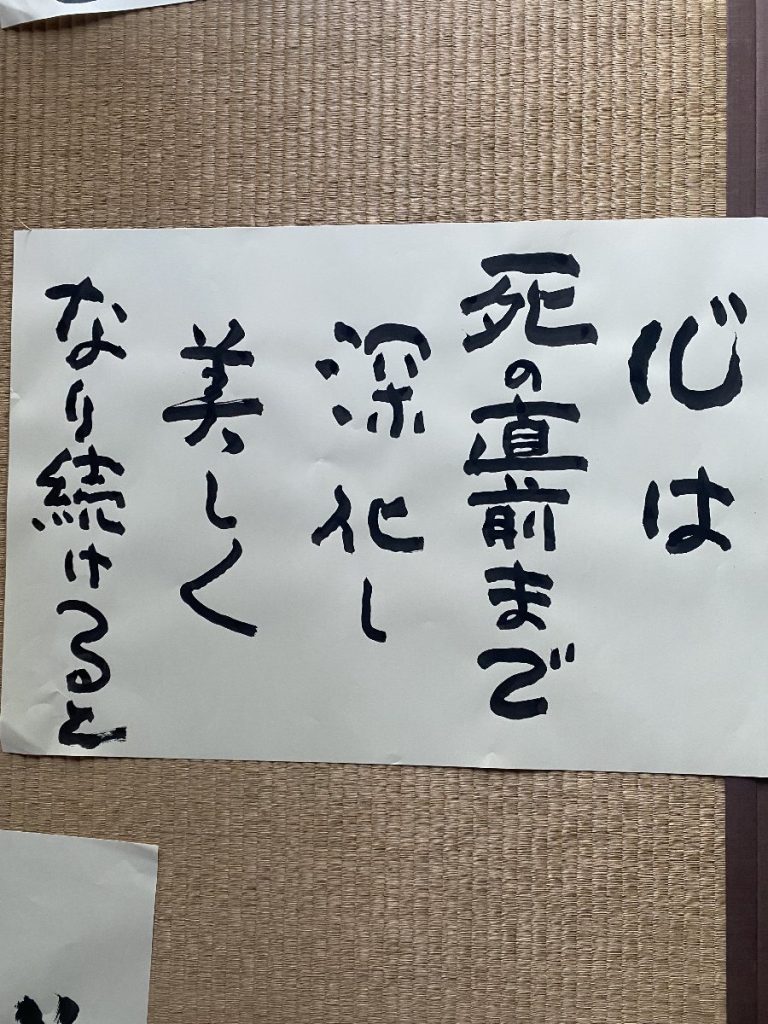 心は
死の直前まで
深化し
美しく
なり続けると